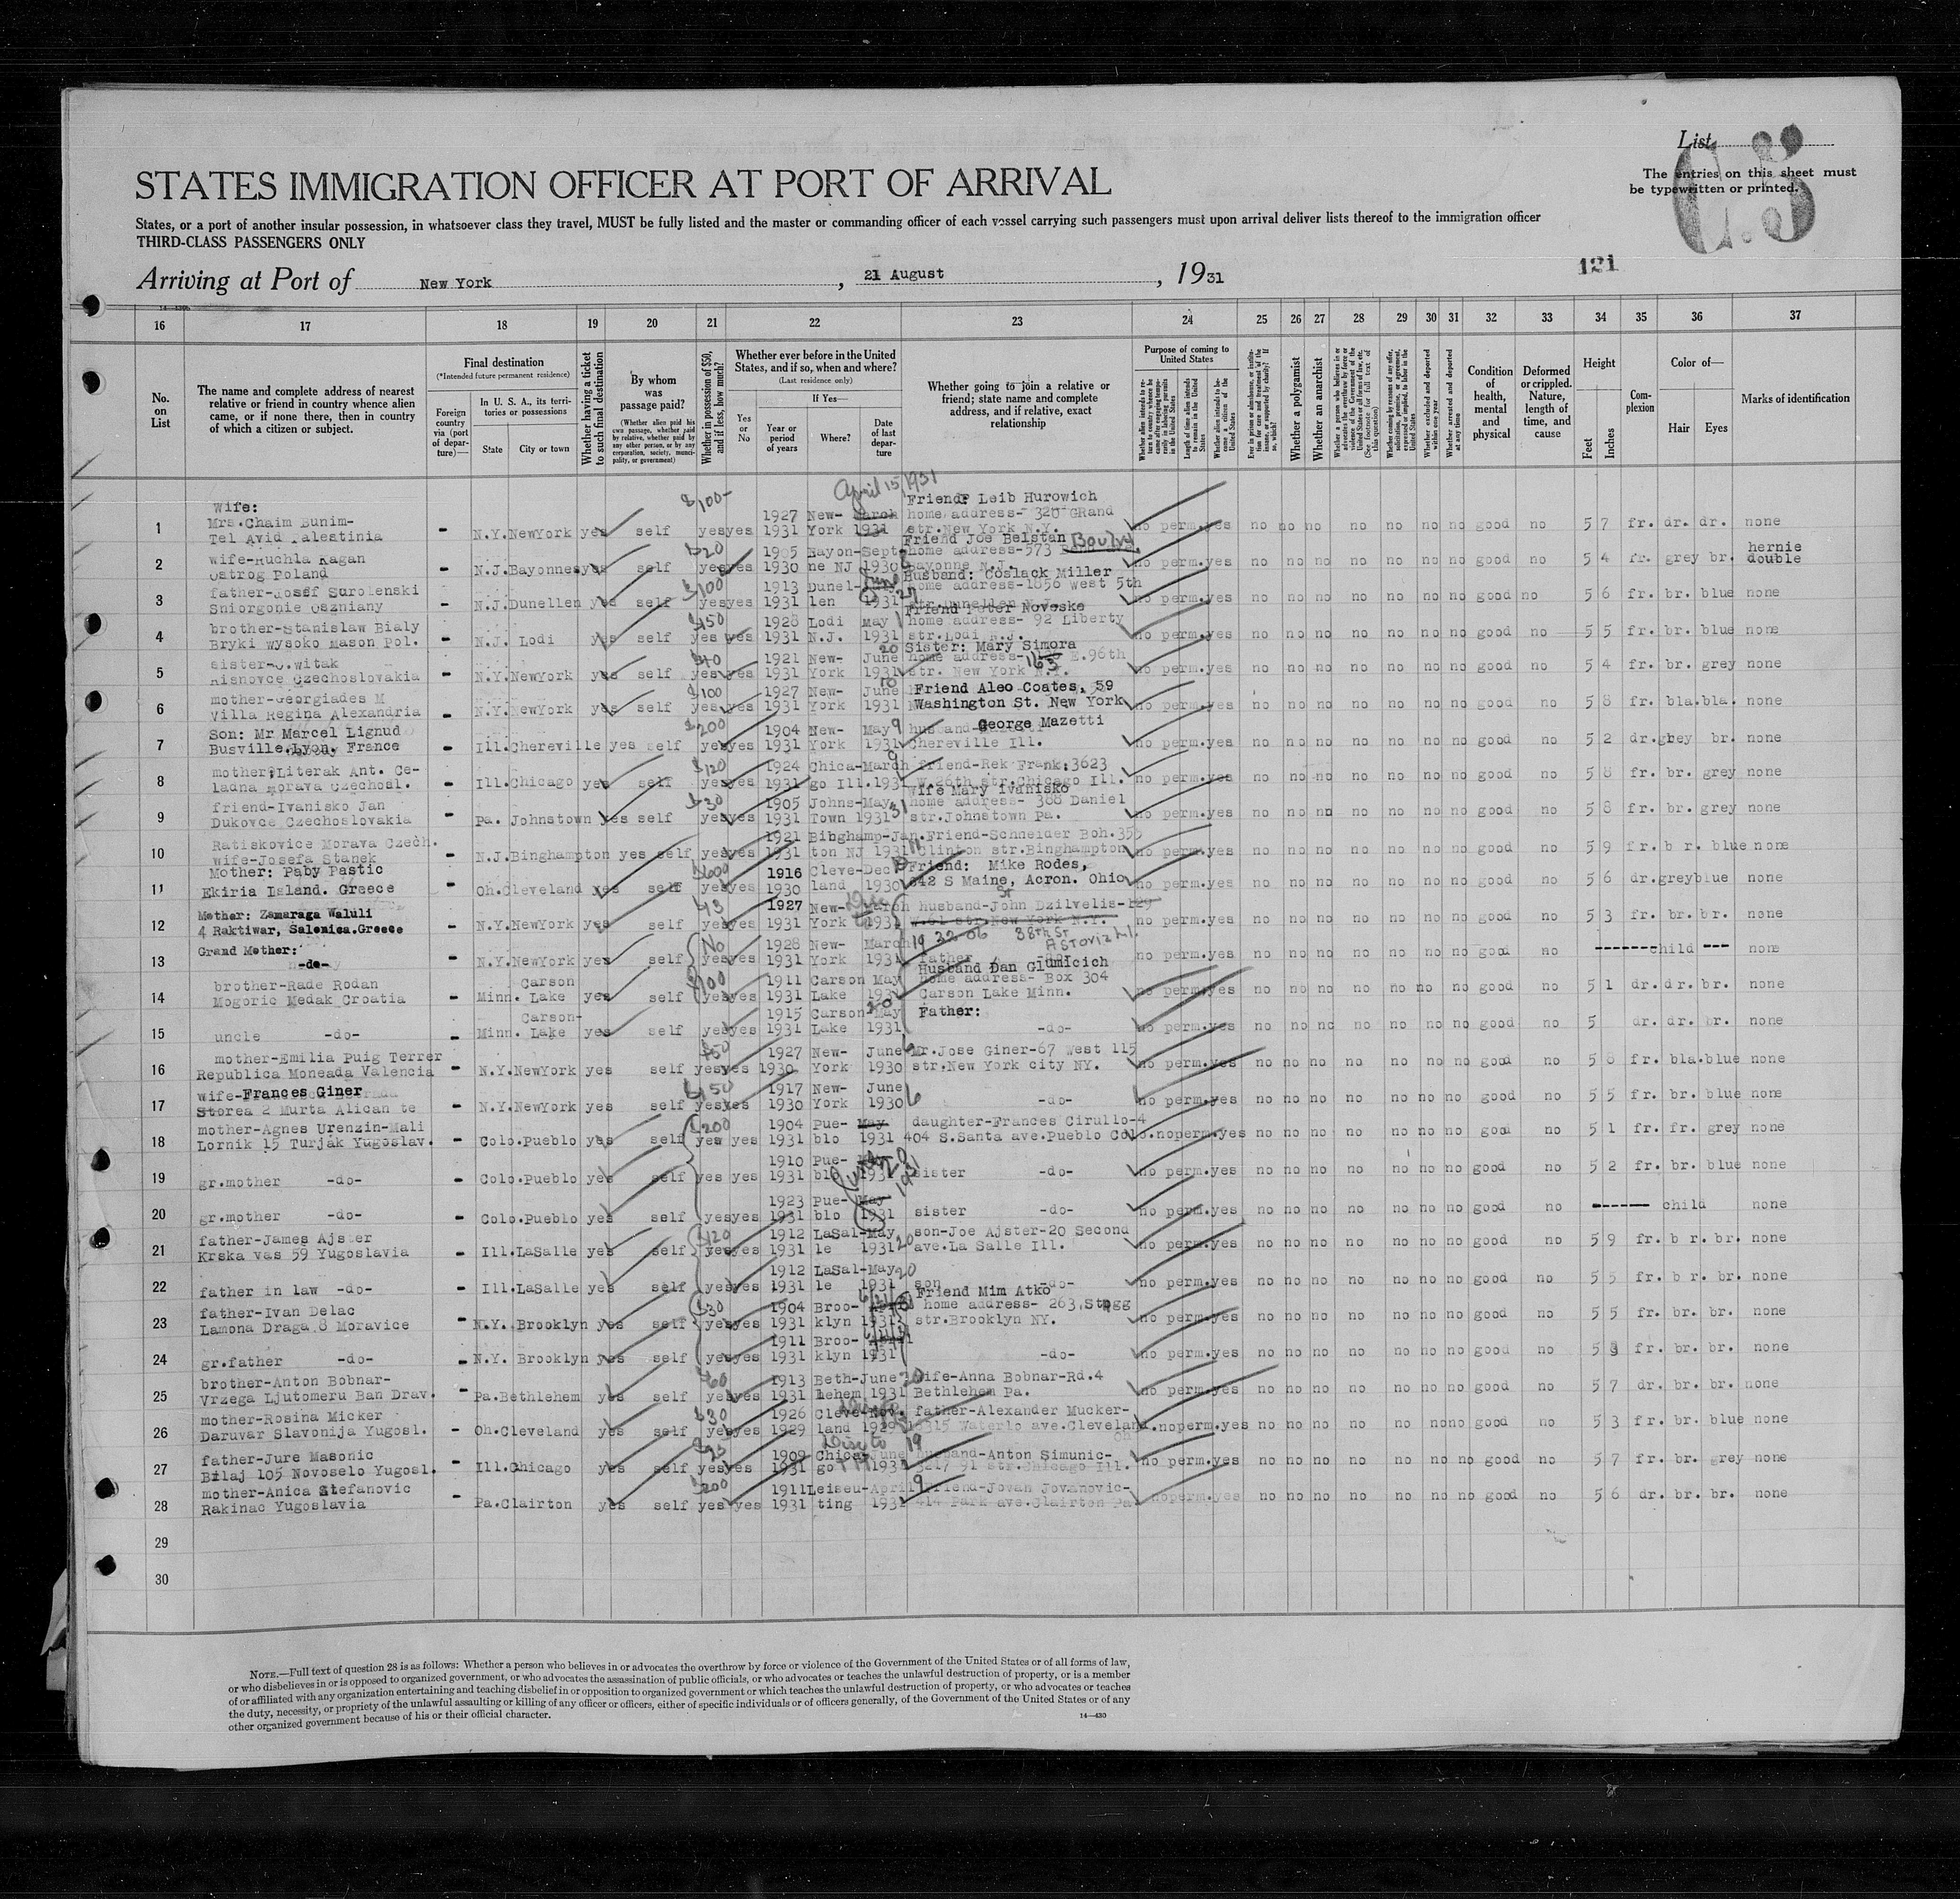 List
The entries on this sheet must
be typewritten or printed.
STATES IMMIGRATION OFFICER AT PORT OF ARRIVAL
States, or a port of another insular possession, in whatsoever class they travel, MUST be fully listed and the master or commanding officer of each vessel carrying such passengers must upon arrival deliver lists thereof to the immigration officer
THIRD-CLASS PASSENGERS ONLY
121
Arriving at Port of New York, 21 August, 1931
16 17 18 19 20 21 22 23 24 25 26 27 28 29 30 31 32 33 34 35 36 37
No. on List
The name and complete address of nearest relative or friend in country whence alien came, or if none there, then in country of which a citizen or subject.
Final destination
(*Intended future permanent residence)
Foreign country via (port of departure)—
In U. S. A., its territories or possessions
State
City or town
Whether having a ticket to such final destination
By whom was passage paid?
(Whether alien paid his own passage, whether paid by relative, whether paid by any other person, or by any corporation, society, municipality, or government)
Whether in possession of $50, and if less, how much?
Whether ever before in the United States, and if so, when and where?
(Last residence only)
Yes or No
If Yes—
Year or period of years
Where?
Date of last departure
Whether going to join a relative or friend; state name and complete address, and if relative, exact relationship
Purpose of coming to United States
Whether a polygamist
Whether an anarchist
Condition of health, mental and physical
Deformed or crippled. Nature, length of time, and cause
Height
Feet
Inches
Complexion
Color of—
Hair
Eyes
Marks of identification
April 15/1931
Wife: $100- Friend: Leib Hurowich
Mrs.Chaim Bunim- 1927 New- March home address- 320 GRand
1 Tel Avid Palestinia - N.Y.NewYork yes self yesyes 1931 York 1931 str.New York N.Y. no perm.yes no no no no no no no good no 5 7 fr. dr. dr. none
$20 Friend Joe Belstan Boulvy
wife-Ruchla Kagan 1905 Bayon-Sept home address-573 hernie
2 Ostrog Poland - N.J.Bayonne yes self yesyes 1930 ne NJ 1930 Bayonne N.J. no perm.yes no no no no no no no good no 5 4 fr. grey br. double
$100 Husband: Coslack Miller
father-Josef Surolenski 1913 Dunel- June home address-1856 West 5th
3 Sniorgonie Oszniany - N.J.Dunellen yes self yesyes 1931 len 1931 no perm.yes no no no no no no no good no 5 6 fr. br. blue none
$450 Friend Peter Noveske
brother-Stanislaw Bialy 1928 Lodi May home address- 92 Liberty
4 Bryki wysoko Mason Pol. - N.J. Lodi yes self yes yes 1931 N.J. 1931 str.Lodi N.J. no perm.yes no no no no no no no good no 5 5 fr. br. blue none
$40 20 Sister: Mary Simora
sister-O.Witak 1921 New- June home address- 165 E.96th
5 Risnovce Czechoslovakia - N.Y.NewYork yes self yes yes 1931 York 1931 str. New York N.Y. no perm.yes no no no no no no no good no 5 4 fr. br. grey none
mother-Georgiades M $100 1927 New- June 10 Friend Aleo Coates, 59
6 Villa Regina Alexandria - N.Y.NewYork yes self yes yes 1931 York 1931 Washington St. New York no perm.yes no no no no no no no good no 5 8 fr. bla.bla. none
Son: Mr Marcel Lignud $200 1904 New- May 9 husband-George Mazetti
7 Busville.Lyon. France - Ill.Chereville yes self yesyes 1931 York 1931 Chereville Ill. no perm.yes no no no no no no no good no 5 2 dr.grey br. none
mother:Literak Ant. Ce- $120 1924 Chica-March 9 friend-Rek Frank:3623
8 ladna Morava Czechosl. - Ill.Chicago yes self yesyes 1931 go Ill.193 W.26th str.Chicago Ill. no perm.yes no no no no no no no good no 5 8 fr. br. grey none
Wife Mary Ivanisko
friend-Ivanisko Jan $30 1905 Johns-May 31 home address- 388 Daniel
9 Dukovce Czechoslovakia - Pa. Johnstown yes self yesyes 1931 Town 1931 str.Johnstown Pa. no perm.yes no no no no no no no good no 5 8 fr. br. grey none
Ratiskovice Morava Czech. 1921 Binghamp-Jan. Friend-Schneider Boh.353
10 wife-Josefa Stanek - N.J.Binghampton yes self yesyes 1931 ton NJ 1931 Clinton str.Binghampton no perm.yes no no no no no no no good no 5 9 fr. b r. blue none
Mother: Paby Pastic $600 1916 Cleve-Dec Friend: Mike Rodes,
11 Ekiria Island. Greece - Oh.Cleveland yes self yesyes 1930 land 1930 642 S Maine, Acron. Ohio no perm.yes no no no no no no no good no 5 6 dr.greyblue none
Mother: Zamaraga Waluli $43 1927 New- March husband-John Dzilvelis-129
12 4 Raktiwar, Salonica.Greece - N.Y.NewYork yes self yesyes 1931 York 1931 W.61 str.New York N.Y. no perm.yes no no no no no no no good no 5 3 fr. br. br. none
Grand Mother: No 1928 New- March 19 32 06 38th St Astoria L.I.
13 -do- - N.Y.NewYork yes self yesyes 1931 York 1931 father no perm.yes no no no no no no no good no child none
Husband Dan Glumicich
brother-Rade Rodan Carson $100 1911 Carson May home address- Box 304
14 Mogoric Medak Croatia - Minn. Lake yes self yesyes 1931 Lake 1931 Carson Lake Minn. no perm.yes no no no no no no no good no 5 1 dr. dr. br. none
Carson- 1915 Carson-May Father:
15 uncle -do- - Minn. Lake yes self yesyes 1931 Lake 1931 -do- no perm.yes no no no no no no no good no 5 dr. dr. br. none
mother-Emilia Puig Terrer $50 1927 New- June 6 Mr.Jose Giner-67 West 115
16 Republica Moneada Valencia - N.Y.NewYork yes self yesyes 1930 York 1930 str.New York city NY. no perm.yes no no no no no no no good no 5 8 fr. bla.blue none
wife-Frances Giner $150 1917 New- June
17 Storea 2 Murta Alican te - N.Y.NewYork yes self yesyes 1930 York 1930 6 -do- no perm.yes no no no no no no no good no 5 5 fr. br. blue none
mother-Agnes Urenzin-Mali $200 1904 Pue- May daughter-Frances Cirullo-4
18 Lornik 15 Turjak Yugoslav. - Colo.Pueblo yes self yes yes 1931 blo 1931 404 S.Santa ave.Pueblo Colo.noperm.yes no no no no no no no good no 5 1 fr. fr. grey none
1910 Pue-
19 gr.mother -do- - Colo.Pueblo yes self yes yes 1931 blo 1931 sister -do- no perm.yes no no no no no no no good no 5 2 fr. br. blue none
1923 Pue- May
20 gr.mother -do- - Colo.Pueblo yes self yesyes 1931 blo 1931 sister -do- no perm.yes no no no no no no no good no child none
father-James Ajster $120 1912 LaSal-May 20 son-Joe Ajster-20 Second
21 Krska vas 59 Yugoslavia - Ill.LaSalle yes self yesyes 1931 le 1931 ave.La Salle Ill. no perm.yes no no no no no no no good no 5 9 fr. b r. br. none
1912 LaSal-May 20
22 father in law -do- - Ill.LaSalle yes self yesyes 1931 le 1931 son -do- no perm.yes no no no no no no no good no 5 5 fr. b r. br. none
Friend Mim Atko
father-Ivan Delac $30 1904 Broo- home address- 263,Stagg
23 Lamona Draga 8 Moravice - N.Y. Brooklyn yes self yesyes 1931 klyn 1931 str.Brooklyn NY. no perm.yes no no no no no no no good no 5 5 fr. br. br. none
1911 Broo-
24 gr.father -do- - N.Y. Brooklyn yes self yesyes 1931 klyn 1931 -do- no perm.yes no no no no no no no good no 5 fr. br. br. none
brother-Anton Bobnar- $60 1913 Beth-June 20 wife-Anna Bobnar-Rd.4
25 Vrzega Ljutomeru Ban Drav. - Pa.Bethlehem yes self yesyes 1931 lehem 1931 Bethlehem Pa. no perm.yes no no no no no no no good no 5 7 dr. br. br. none
mother-Rosina Micker $30 1926 Cleve-Nov. father-Alexander Mucker-
26 Daruvar Slavonija Yugosl. - Oh.Cleveland yes self yesyes 1929 land 1929 Waterlo ave.Cleveland.noperm.yes no no no no no no no good no 5 3 fr. br. blue none
father-Jure Masonic 1909 Chica-June 19 husband-Anton Simunic-
27 Bilaj 105 Novoselo Yugosl. - Ill.Chicago yes self yesyes 1931 go 1931 91 str.Chicago Ill. no perm.yes no no no no no no no good no 5 7 fr. br. grey none
mother-Anica Stefanovic $200 1911 Leiseu-April 9 friend-Jovan Jovanovic-
28 Rakinac Yugoslavia - Pa.Clairton yes self yes yes 1931 ting 1931 414 Park ave.Clairton Pa noperm.yes no no no no no no no good no 5 6 dr. br. br. none
29
30
NOTE.—Full text of question 28 is as follows: Whether a person who believes in or advocates the overthrow by force or violence of the Government of the United States or of all forms of law,
or who disbelieves in or is opposed to organized government, or who advocates the assassination of public officials, or who advocates or teaches the unlawful destruction of property, or is a member
of or affiliated with any organization entertaining and teaching disbelief in or opposition to organized government or which teaches the unlawful destruction of property, or who advocates or teaches
the duty, necessity, or propriety of the unlawful assaulting or killing of any officer or officers, either of specific individuals or of officers generally, of the Government of the United States or of any
other organized government because of his or their official character.
14—430